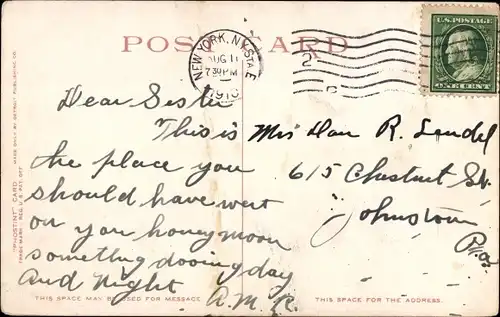 POST CARD
NEW YORK, N.Y. STA E
AUG 11
7 30 PM
1910
U.S. POSTAGE
ONE CENT
Dear Sister
This is
the place you
should have went
on you honeymoon
something dooing day
and Night
A.M.R.
Mrs Dan R.
615 Chestnut St.
Johnstown
Pa.
"PHOSTINT" CARD
TRADE MARK REG. U.S. PAT. OFF.
MADE ONLY BY DETROIT PUBLISHING CO.
THIS SPACE MAY BE USED FOR MESSAGE
THIS SPACE FOR THE ADDRESS.